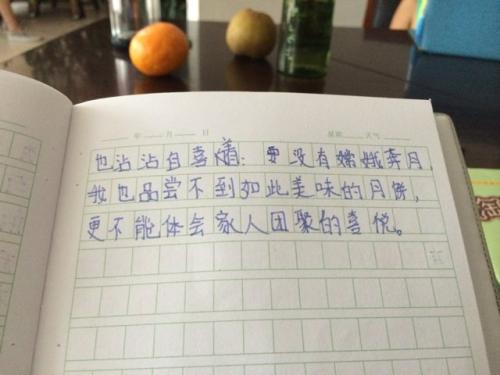 年 月 日 星期 天气
也沾沾自喜着：要没有嫦娥奔月，
我也品尝不到如此美味的月饼，
更不能体会家人团聚的喜悦。